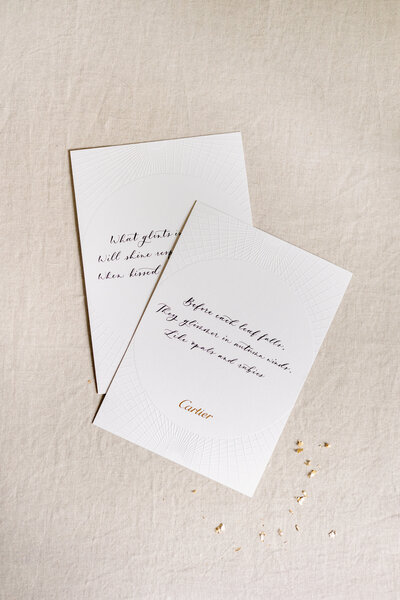 What glints i
Will shine res
When kissed
Before each leaf falls,
They glimmer in autumn winds,
Like opals and rubies
Cartier